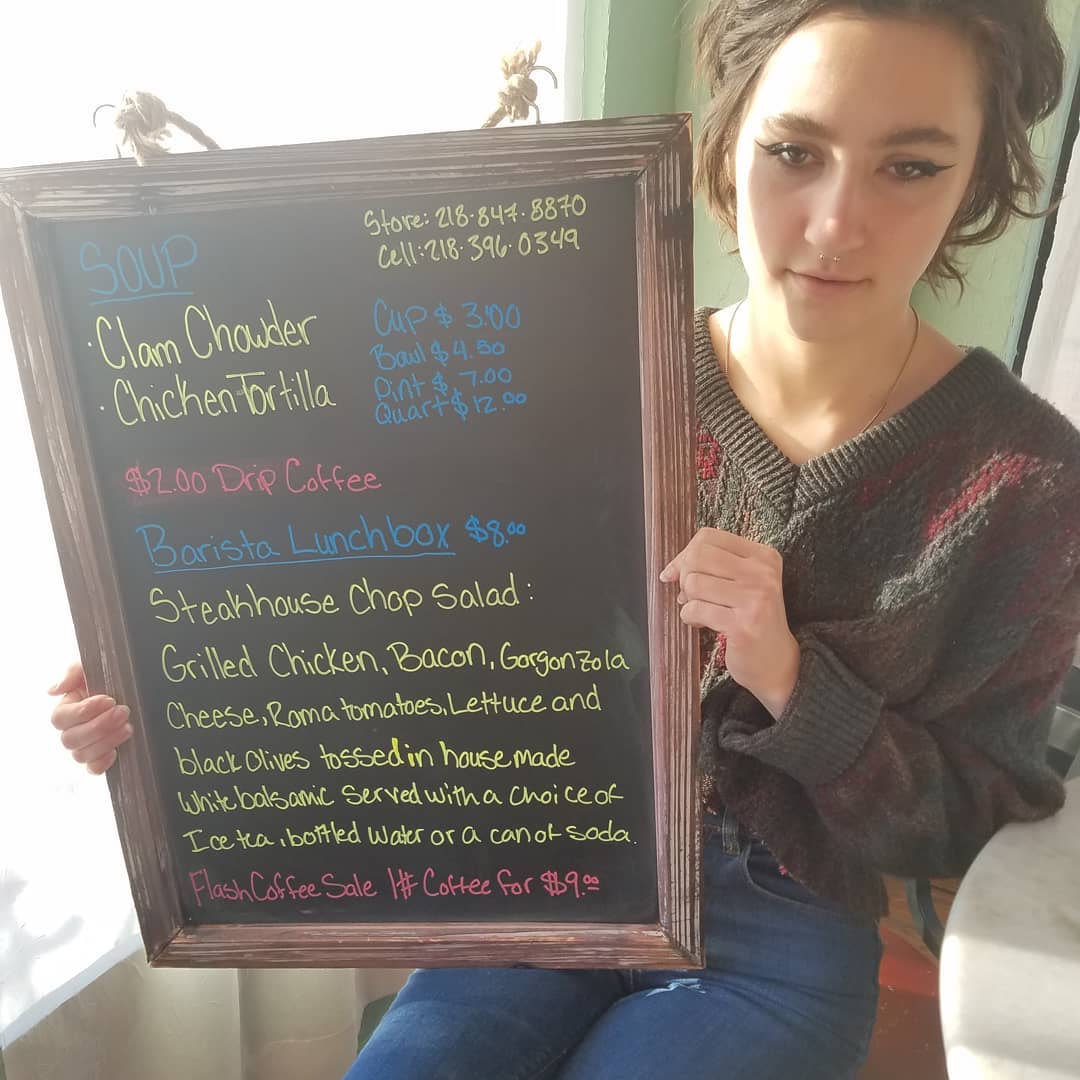 Store: 218.847.8870
Cell: 218.396.0349
SOUP
· Clam Chowder
· Chicken Tortilla
Cup $ 3.00
Bowl $ 4.50
Pint $ 7.00
Quart $ 12.00
$2.00 Drip Coffee
Barista Lunchbox $8.00
Steakhouse Chop Salad:
Grilled Chicken, Bacon, Gorgonzola
Cheese, Roma tomatoes, Lettuce and
black Olives tossed in house made
White balsamic Served with a Choice of
Ice tea, bottled Water or a can of soda.
Flash Coffee Sale 1# Coffee for $9.00